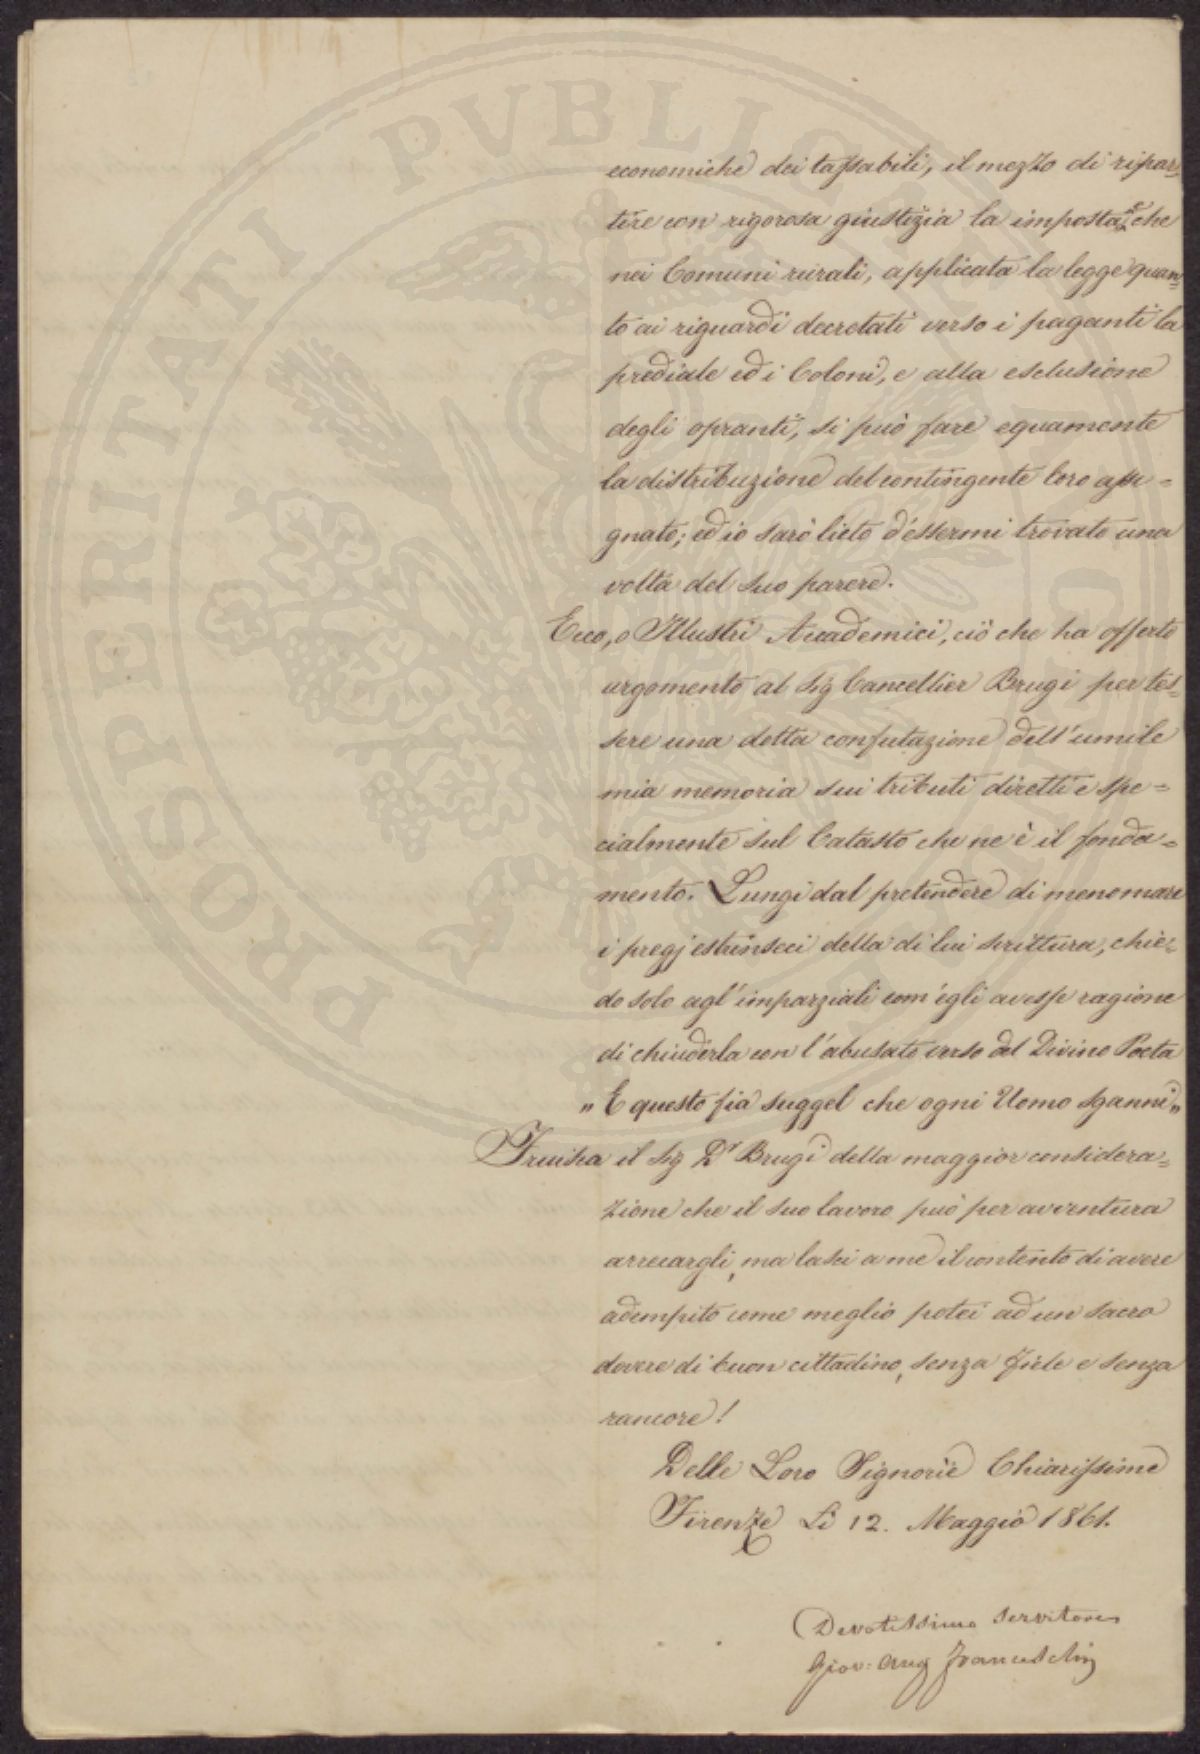 economiche dei tassabili, il mezzo di ripar=
tire con rigorosa giustizia la imposta e che
nei Comuni rurali, applicata la legge quan=
to ai riguardi decretati verso i paganti la
prediale ed i Coloni, e alla esclusione
degli opranti, si può fare equamente
la distribuzione del contingente loro asse=
gnato; ed io sarò lieto d'essermi trovato una
volta del suo parere.
Ecco, o Illustri Accademici, ciò che ha offerto
argomento al Sig Cancellier Brugi per tes=
sere una dotta confutazione dell'umile
mia memoria sui tributi diretti e spe=
cialmente sul Catasto che ne è il fonda=
mento. Lungi dal pretendere di menomare
i pregj estrinseci della di lui scrittura, chie=
do solo agl'imparziali com'egli avesse ragione
di chiuderla con l'abusato verso del Divino Poeta
„ E questo fia suggel che ogni Uomo sganni„
Fruisca il Sig Dr Brugi della maggior considera=
zione che il suo lavoro può per avventura
arrecargli, ma lasci a me il contento di avere
adempito come meglio potei ad un sacro
dovere di buon cittadino, senza fiele e senza
rancore!
Delle Loro Signorie Chiarissime
Firenze Li 12. Maggio 1861.
Devotissimo Servitore
Giov: Aug Franceschi
PROSPERITATI PVBLICAE